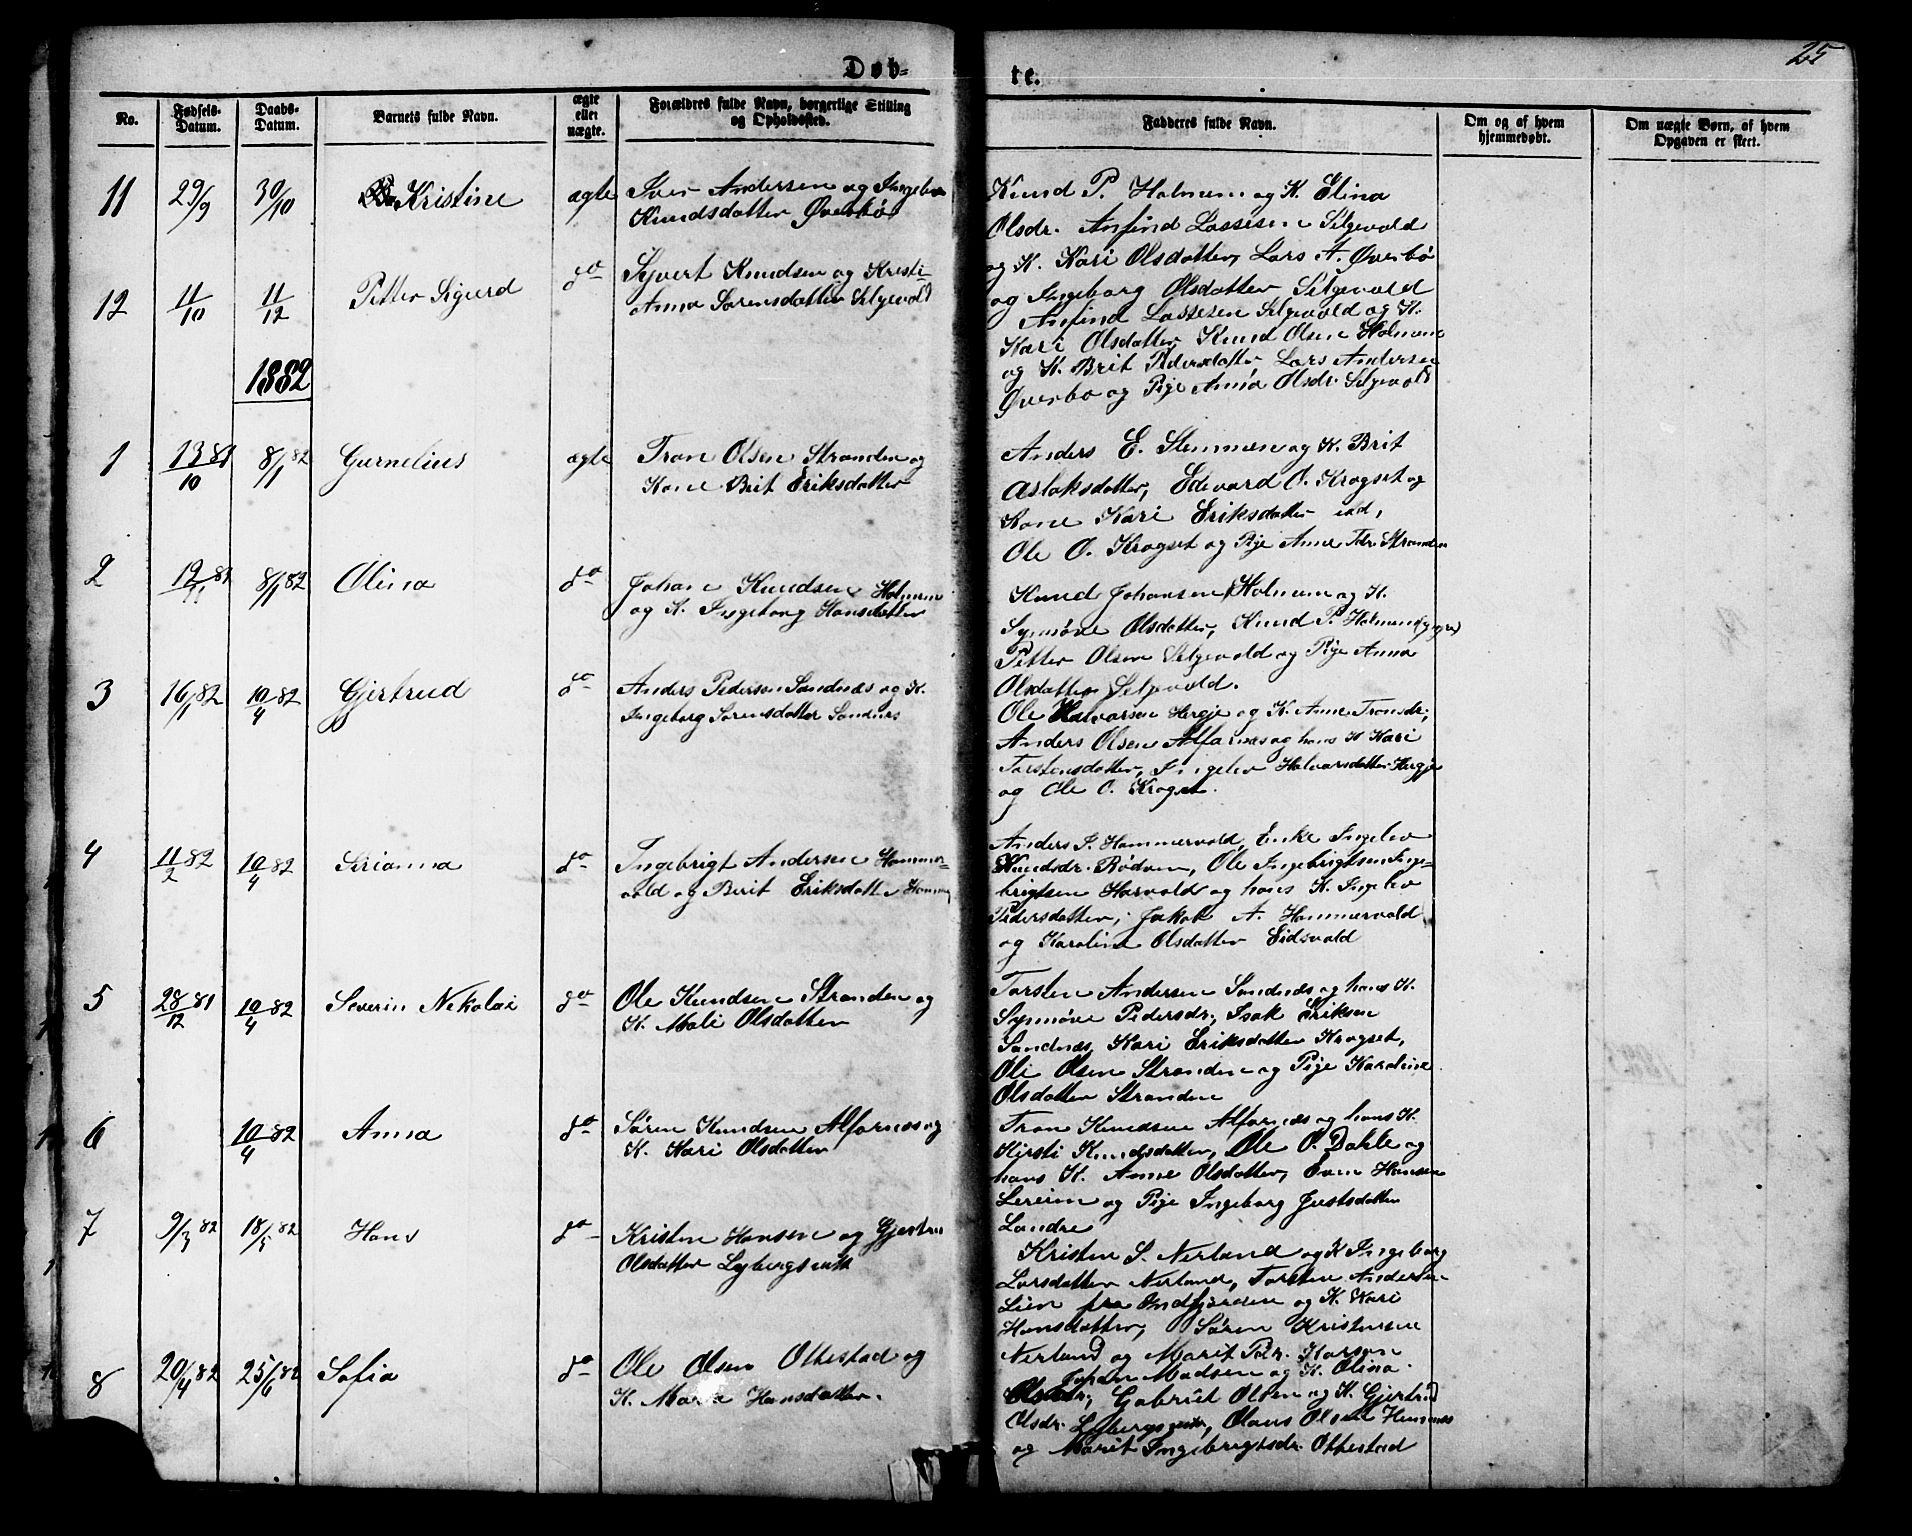 Døb=
te.
25
No.
Fødsels-
Datum.
Daabs-
Datum.
Barnets fulde Navn.
ægte
eller
uægte.
Forældres fulde Navn, borgerlige Stilling
og Opholdssted.
Fadderes fulde Navn.
Om og af hvem
hjemmedøbt.
Om uægte Børn, af hvem
Opgaven er skeet.
11 29/9 30/10 Kristine ægte Iver Andersen og Ingebor
Knudsdatter Øverbø
Knud P. Holmem og K. Elina
Olsdr. Anfind Lassesen Selgevold
og K. Kari Olsdatter, Lars A. Øverbø
og Ingeborg Olsdatter Selgevold
12 11/10 11/12 Petter Sigurd do Syvert Knudsen og Kristi
Anna Sørensdatter Selgevold
Anfind Lassesen Selgevold og K.
Kari Olsdatter Knud Olsen Holmem
og K. Brit Pedersdatter Lars Andersen
Øverbø og Pige Anna Olsdr. Selgevold
1882
1 13/10 81 8/1 82 Gurnelius ægte Tron Olsen Stranden og
Kone Brit Eriksdatter
Anders E. Stemmen og K. Brit
Aslaksdatter, Edevard O. Krogset og
Kone Kari Eriksdatter ibd,
Ole O. Krogset og Pige Anne Tdr. Stranden
2 12/11 81 8/1 82 Olina do Johan Knudsen Holmem
og K. Ingeborg Hansdatter
Knud Johansen Holmem og K.
Synnøve Olsdatter, Knud P. Holmem (yngre)
Petter Olsen Selgevold og Pige Anna
Olsdatter Selgevold.
3 16/1 82 10/4 82 Gjertrud do Anders Pederson Sandnæs og K.
Ingeborg Sørensdatter Sandnæs
Ole Halvorsen Hergje og K. Anne Tronsdr,
Anders Olsen Alfarnæs og hans K. Kari
Torstensdatter, Ingelev Halvarsdatter Hergje
og Ole O. Krogset.
4 11/2 82 10/4 82 Serianna do Ingebrigt Andersen Hammer-
vold og Berit Eriksdatter Hamme
Anders I. Hammervold, Enke Ingelev
Knudsdr. Rødven, Ole Ingebrigtsen Inge-
brigtsen Harvold og hans K. Ingelev
Pedersdatter, Jakob A. Hammervold
og Karoline Olsdatter Eidsvold
5 28/12 81 10/4 82 Severin Nekolai do Ole Knudsen Stranden og
K. Mali Olsdatter
Torsten Andersen Sandnæs og hans K.
Synnøve Pedersdr, Isak Eriksen
Sandnæs, Kari Eriksdatter Krogset,
Ole Olsen Stranden og Pige Karoline
Olsdatter Stranden
6 10/4 82 Anna do Søren Knudsen Alfarnæs og
K. Kari Olsdatter
Tron Knudsen Alfarnæs og hans K.
Kirsti Knudsdatter, Ole O. Dahle og
hans K. Anne Olsdatter, Even Hansen
Lereim og Pige Ingeborg Justsdatter
Landre
7 9/3 82 18/5 82 Hans do Kristen Hansen og Gjertru
Olsdatter Lybergsvik
Kristen S. Nerland og K Ingeborg
Larsdatter Nerland, Torsten Anderse
Lien fra Indfjorden og K. Kari
Hansdatter, Søren Kristensen
Nerland og Marit Pdr. Korsen
8 20/4 82 25/6 82 Sofia do Ole Olsen Ottestad og
K. Marta Hansdatter.
Johan Madsen og K. Olina
Olsdr, Gabriel Olsen og K. Gjertrud
Olsdr. Lybergsvik, Olaus Olsen Hennæs
og Marit Ingebrigtsdr. Ottestad